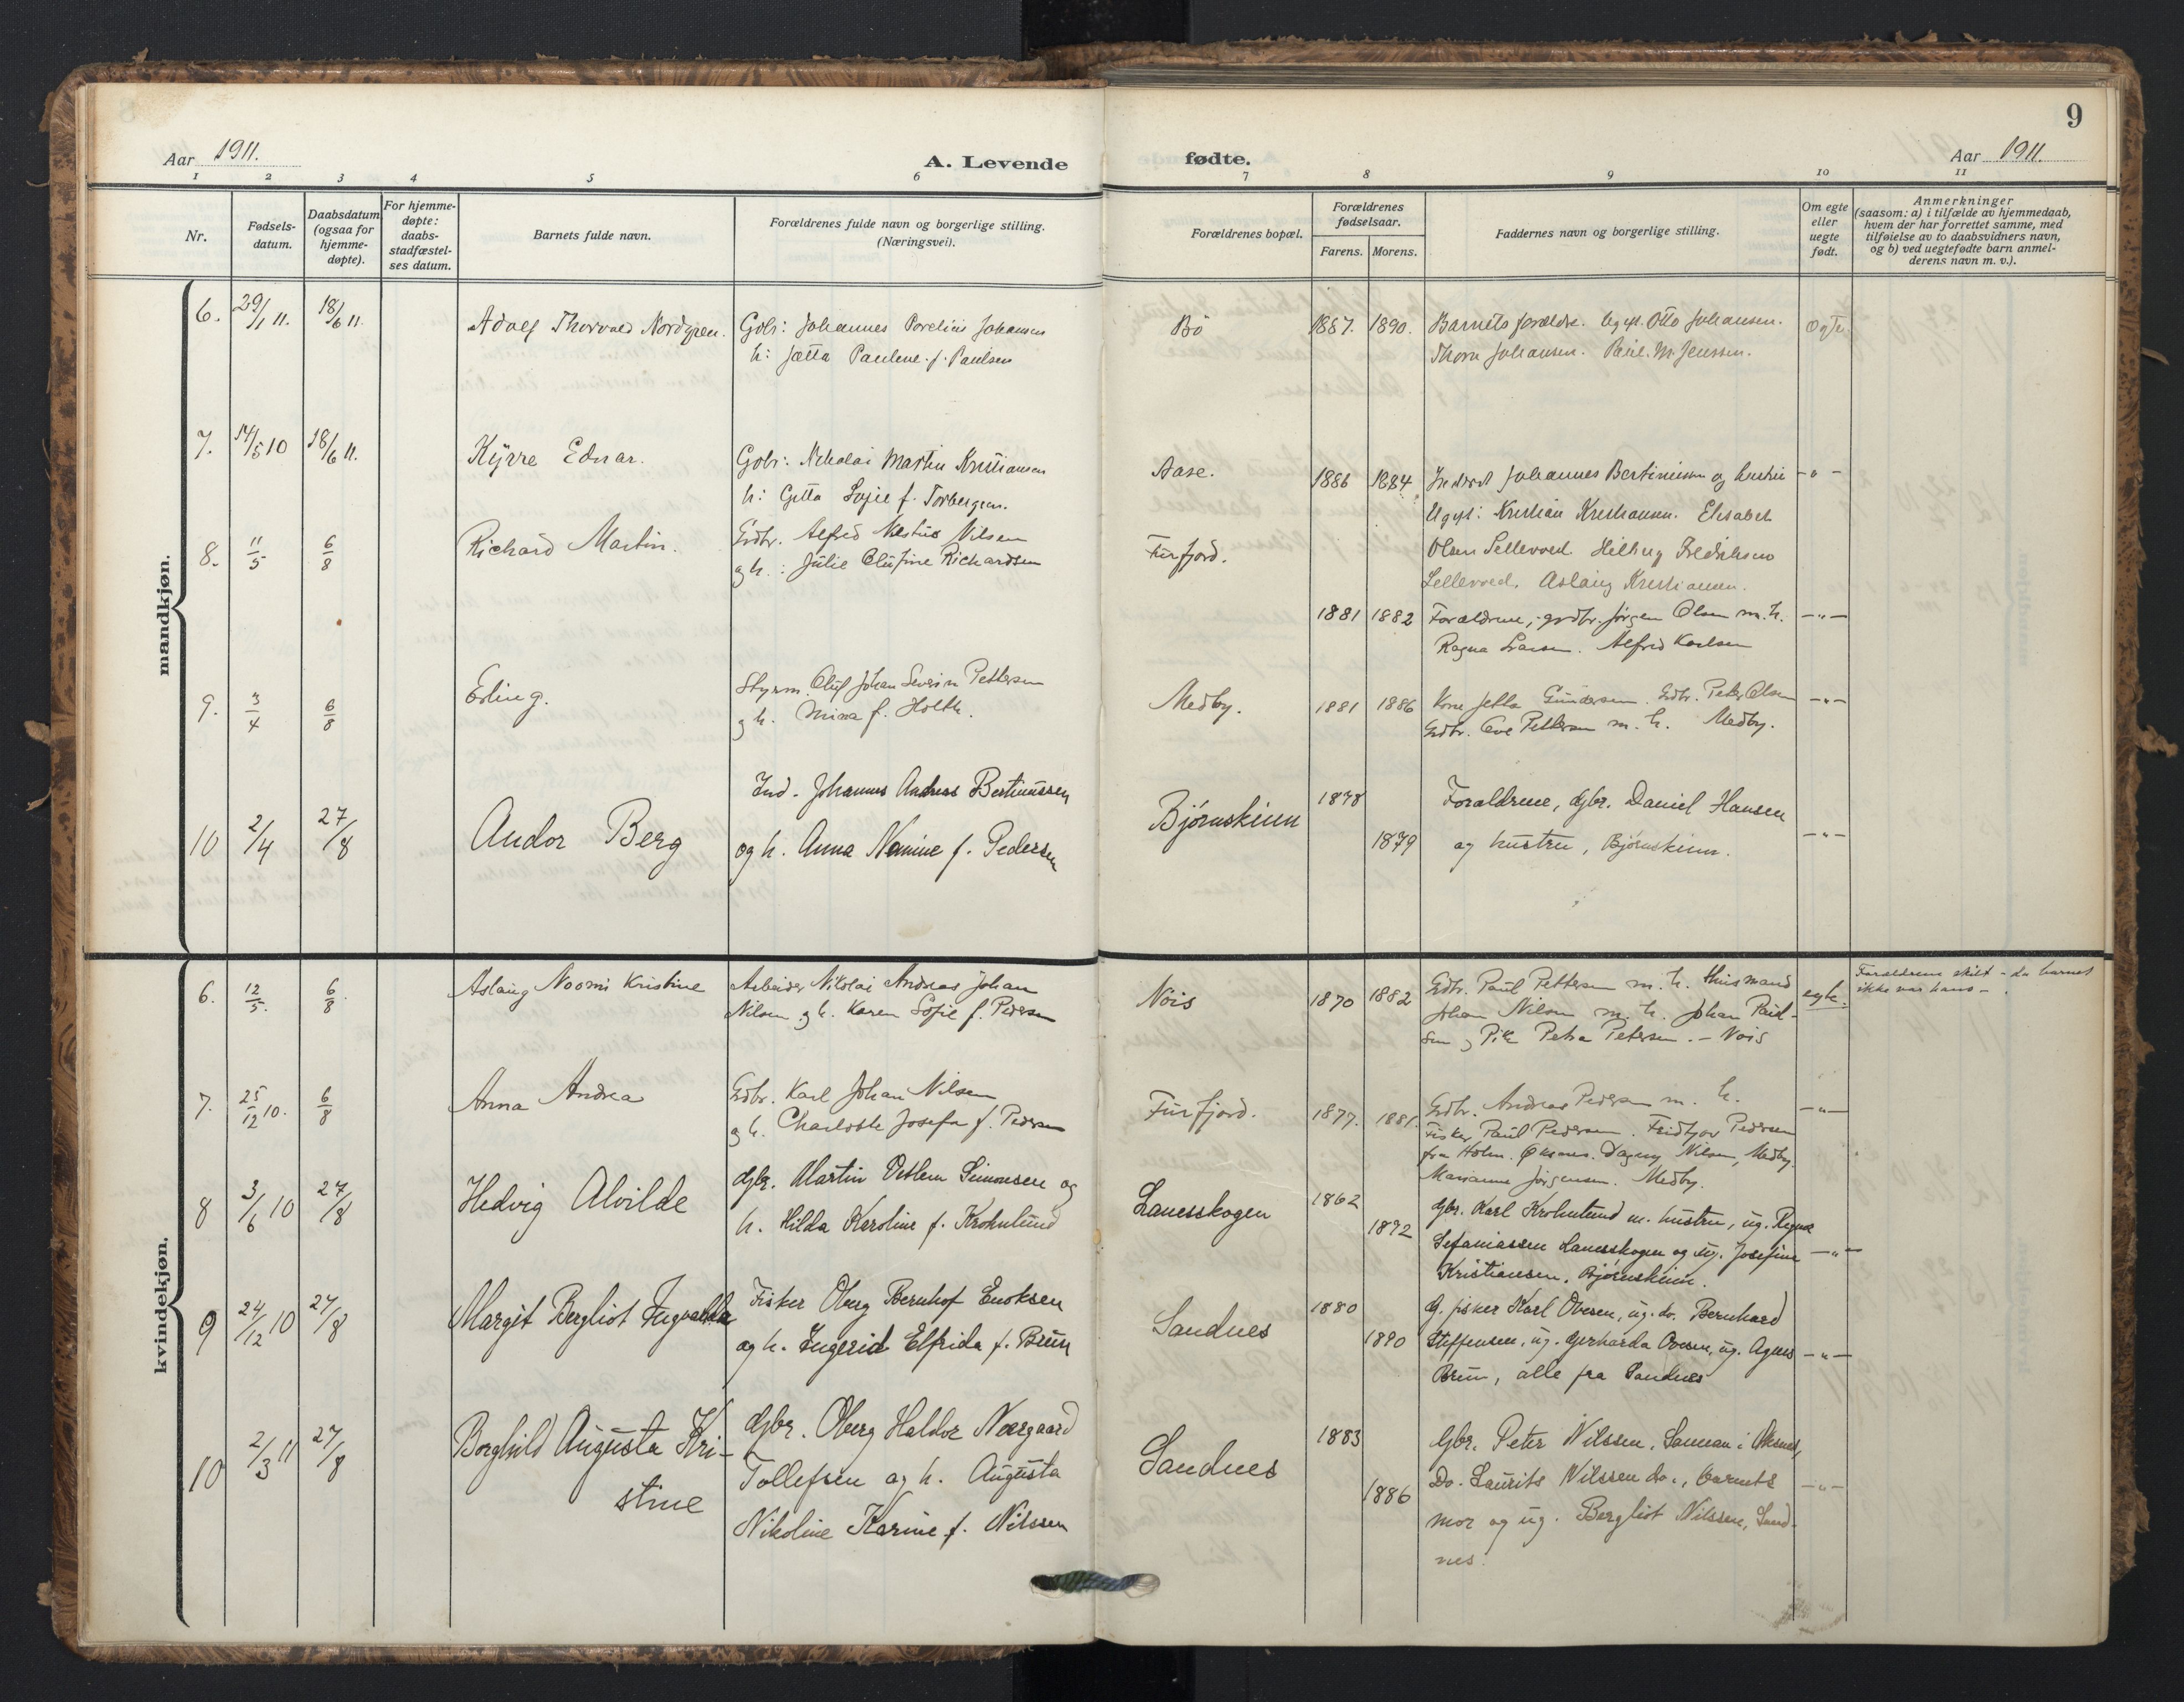 9
Aar 1911.
A. Levende
fødte.
Aar 1911.
1 2 3 4 5 6 7 8 9 10 11
Nr.
Fødsels-
datum.
Daabsdatum
(ogsaa for
hjemme-
døpte).
For hjemme-
døpte:
daabs-
stadfæstel-
ses datum.
Barnets fulde navn.
Forældrenes fulde navn og borgerlige stilling.
(Næringsvei).
Forældrenes bopæl.
Forældrenes
fødselsaar.
Farens. Morens.
Faddernes navn og borgerlige stilling.
Om egte
eller
uegte
født.
Anmerkninger
(saasom: a) i tilfælde av hjemmedaab,
hvem der har forrettet samme, med
tilføielse av to daabsvidners navn,
og b) ved uegtefødte barn anmel-
derens navn m. v.).
mandkjøn.
6. 29/1 11. 18/6 11. Adolf Thorvald Nordgren. Gbr: Johannes Johansen Bö 1887. 1890. Barnets forældre. Ugift Otto Johansen.
h: Jætta Pauline f. Paulsen
Thora Johansen. Paul. M. Jenssen.
7. 14/5 10 18/6 11. Kyrre Edvar. Gbr: Nikolai Martin Kristiansen Aase. 1886 1884 Johannes Bertinussen og hustru - " -
h: Gitta Sofie f. Torbergsen.
Ugift: Kristian Kristiansen. Elisabet
8. 11/5 6/8 Richard Martin. Grdbr. Alfred Nilsen Furfjord.
og h.: Julie Olufine Richardsen
Olsen Sellevoed Fredriksen
Sellevoed. Aslaug Kristiansen.
1881 1882 Forældrene, grdbr. Jørgen Olsen m. h. - " -
Ragna Larsen. Alfred Karlsen
9. 3/4 6/8 Erling. Styrm. Oluf Johan Severin Pettersen Medby. 1881 1886 Kone Jetta Gundersen. Grdbr. Peter Olsen - " -
og h. Mina f. Holth.
Grdbr. Ove Pettersen m. h. Medby.
10 2/4 27/8 Andor Berg Ind. Johannes Andreas Bertinussen Bjørnskinn 1878 Forældrene, gbr. Daniel Hansen
og h. Anna Nomine f. Pedersen 1879 og hustru, Bjørnskinn. - " -
kvindekjøn.
6. 12/5. 6/8. Aslaug Noomi Kristine Arbeider Nikolai Andreas Johan Nöis 1870 1882 Grdbr. Paul Pettersen m. h. Husmand egte. Forældrene skilt - da barnet
Nilsen og h. Karen Sofie f. Pedersen
Johan Nilsen m. h. Johan Paul-
ikke var hans -
sen og Pike Petra Petersen. - Nöis
7. 25/12 10. 6/8 Anna Andrea Grdbr. Karl Johan Nilsen Furfjord. 1877. 1881. Grdbr. Andreas Pedersen m. h. - " -
og h. Charlotte Josefa f. Pedersen
Fisker Paul Pedersen. Fridtjov Pedersen
fra Holm. Øksnes. Dagny Nilsen, Medby.
Marianne Jørgensen. Medby.
8 3/6 10 27/8 Hedvig Alvilde Gbr. Martin Simonsen og Lanesskogen 1862 Gbr. Karl Krohnlund m. hustru, ug.
h. Hilda Karoline f. Krohnlund 1892 Sefaniassen Lanesskogen og ug. Josefine - " -
Kristiansen. Bjørnskinn.
9 24/12 10 27/8 Margit Bergliot Ingvarda Fisker Oberg Bernhof Enoksen Sandnes 1880 G. fisker Karl Ovesen, ug. do. Bernhard
og h. Ingerid Elfrida f. Brun 1890 Steffensen, ug. Gerharda Ovesen, ug. Agnes - " -
Brun, alle fra Sandnes
10 2/3 11 27/8 Borghild Augusta Kri-
stine
Gbr. Oberg Haldor Nærgaard Sandnes 1883 Gbr. Peter Nilssen, i Øksnes,
Tollefsen og h. Augusta 1886 Do. Laurits Nilssen do., barnets - " -
Nikoline Karine f. Nilssen
mor og ug. Bergliot Nilssen, Sand-
nes.